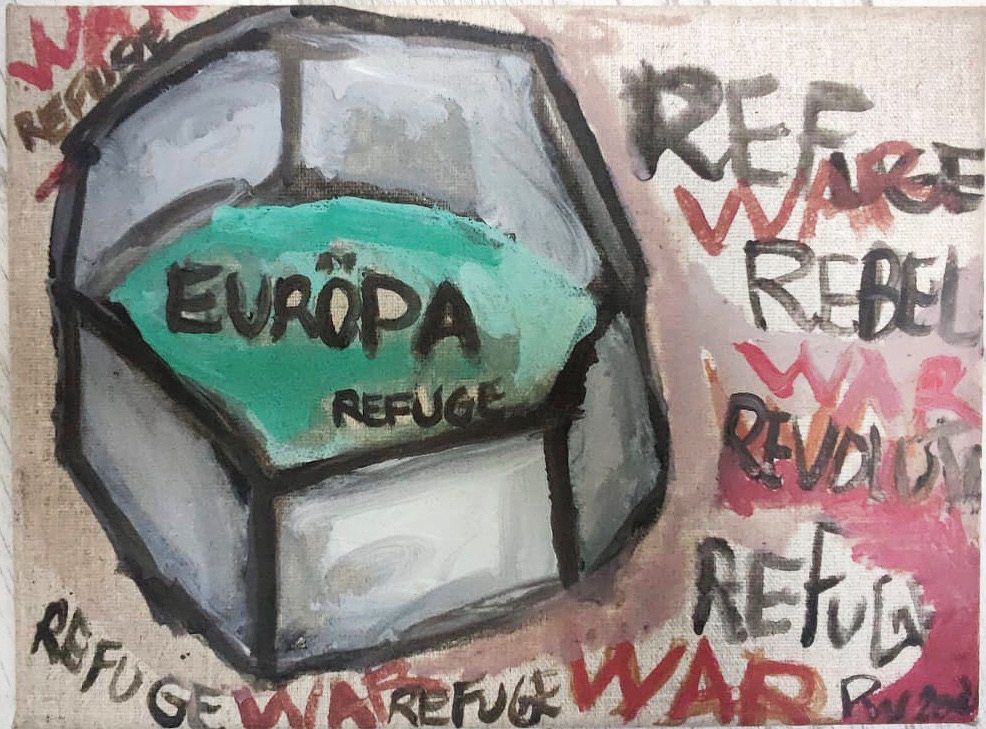 WAR
REFUGE
EURÖPA
REFUGE
REF
WAR UGE
REBEL
WAR
REVOLUTION
REFUGE
REFUGE WAR REFUGE WAR